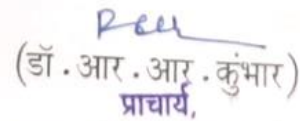 (डॉ. आर. आर. कुंभार)
प्राचार्य,